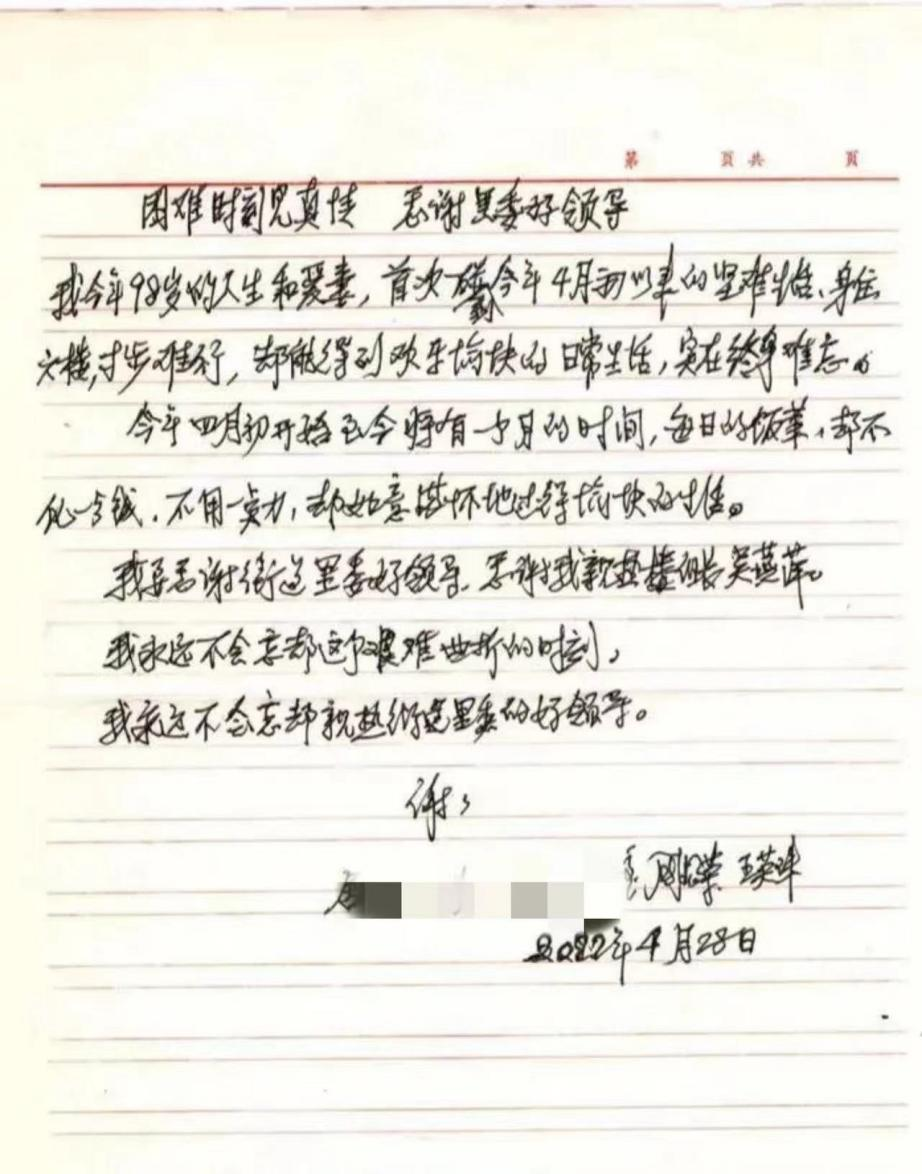 第 頁共 頁
困难时刻见真情 感谢里委好领导
我今年98岁的人生和爱妻，首次碰到今年4月初以来的坚难生活、身住
六楼，寸步难行，却能得到欢乐愉快的日常生活，实在终身难忘。
今年四月初开始至今将有一个月的时间，每日的饭菜，却不
化一分钱，不用一点力，却如意满怀地过得愉快的生活。
我要感谢街道里委好领导，感谢我亲热楼组长吴燕萍。
我永远不会忘却这个艰难曲折的时刻，
我永远不会忘却亲热街道里委的好领导。
谢谢
周 荣 王英
2022年4月28日